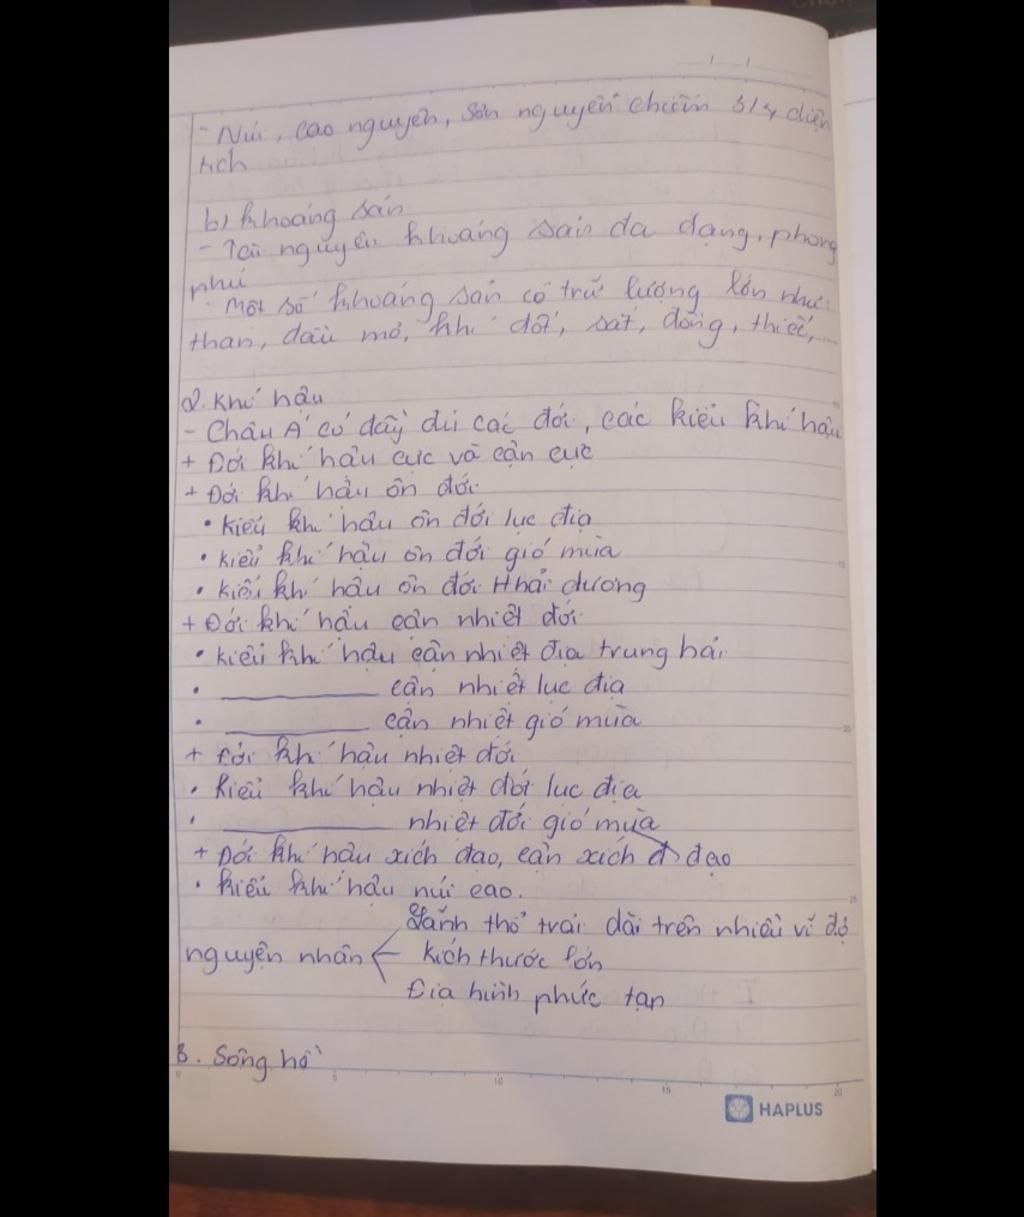 - Núi, cao nguyên, sơn nguyên chiếm 3/4 diện
tích
b) Khoáng sản
- Tài nguyên khoáng sản đa dạng, phong
phú
- Một số khoáng sản có trữ lượng lớn như:
than, dầu mỏ, khí đốt, sắt, đồng, thiếc,...
2. Khí hậu
- Châu Á có đầy đủ các đới, các kiểu khí hậu
+ Đới khí hậu cực và cận cực
+ Đới khí hậu ôn đới
• Kiểu khí hậu ôn đới lục địa
• Kiểu khí hậu ôn đới gió mùa
• Kiểu khí hậu ôn đới Hải dương
+ Đới khí hậu cận nhiệt đới
• Kiểu khí hậu cận nhiệt địa trung hải
• ______ cận nhiệt lục địa
• ______ cận nhiệt gió mùa
+ Đới khí hậu nhiệt đới
• Kiểu khí hậu nhiệt đới lục địa
• ______ nhiệt đới gió mùa
+ Đới khí hậu xích đạo, cận xích đạo
• Kiểu khí hậu núi cao.
Lãnh thổ trải dài trên nhiều vĩ độ
nguyên nhân < Kích thước lớn
Địa hình phức tạp
3. Sông hồ
HAPLUS